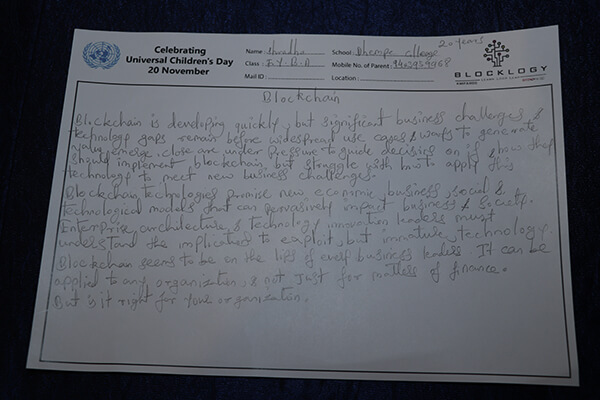 Celebrating
Universal Children's Day
20 November
Name: Shradha School: Dhempe college 20 years
Class: F.Y.B.A Mobile No. of Parent:
Mail ID: Location:
BLOCKLOGY
Blockchain
Blockchain is developing quickly, but significant business challenges &
technology gaps remain before widespread use cases & ways to generate
value emerge. close are under pressure to guide decisions on if & how they
should implement blockchain, but struggle with how to apply this
technology to meet new business challenges.
Blockchain technologies promise new economic, business, social &
technological models that can pervasively impact business & society.
Enterprise architecture & technology innovation leaders must
understand the implications to exploit, but immature technology.
Blockchain seems to be on the lips of every business leaders. It can be
applied to any organization, & not just for matters of finance.
But is it right for your organization.